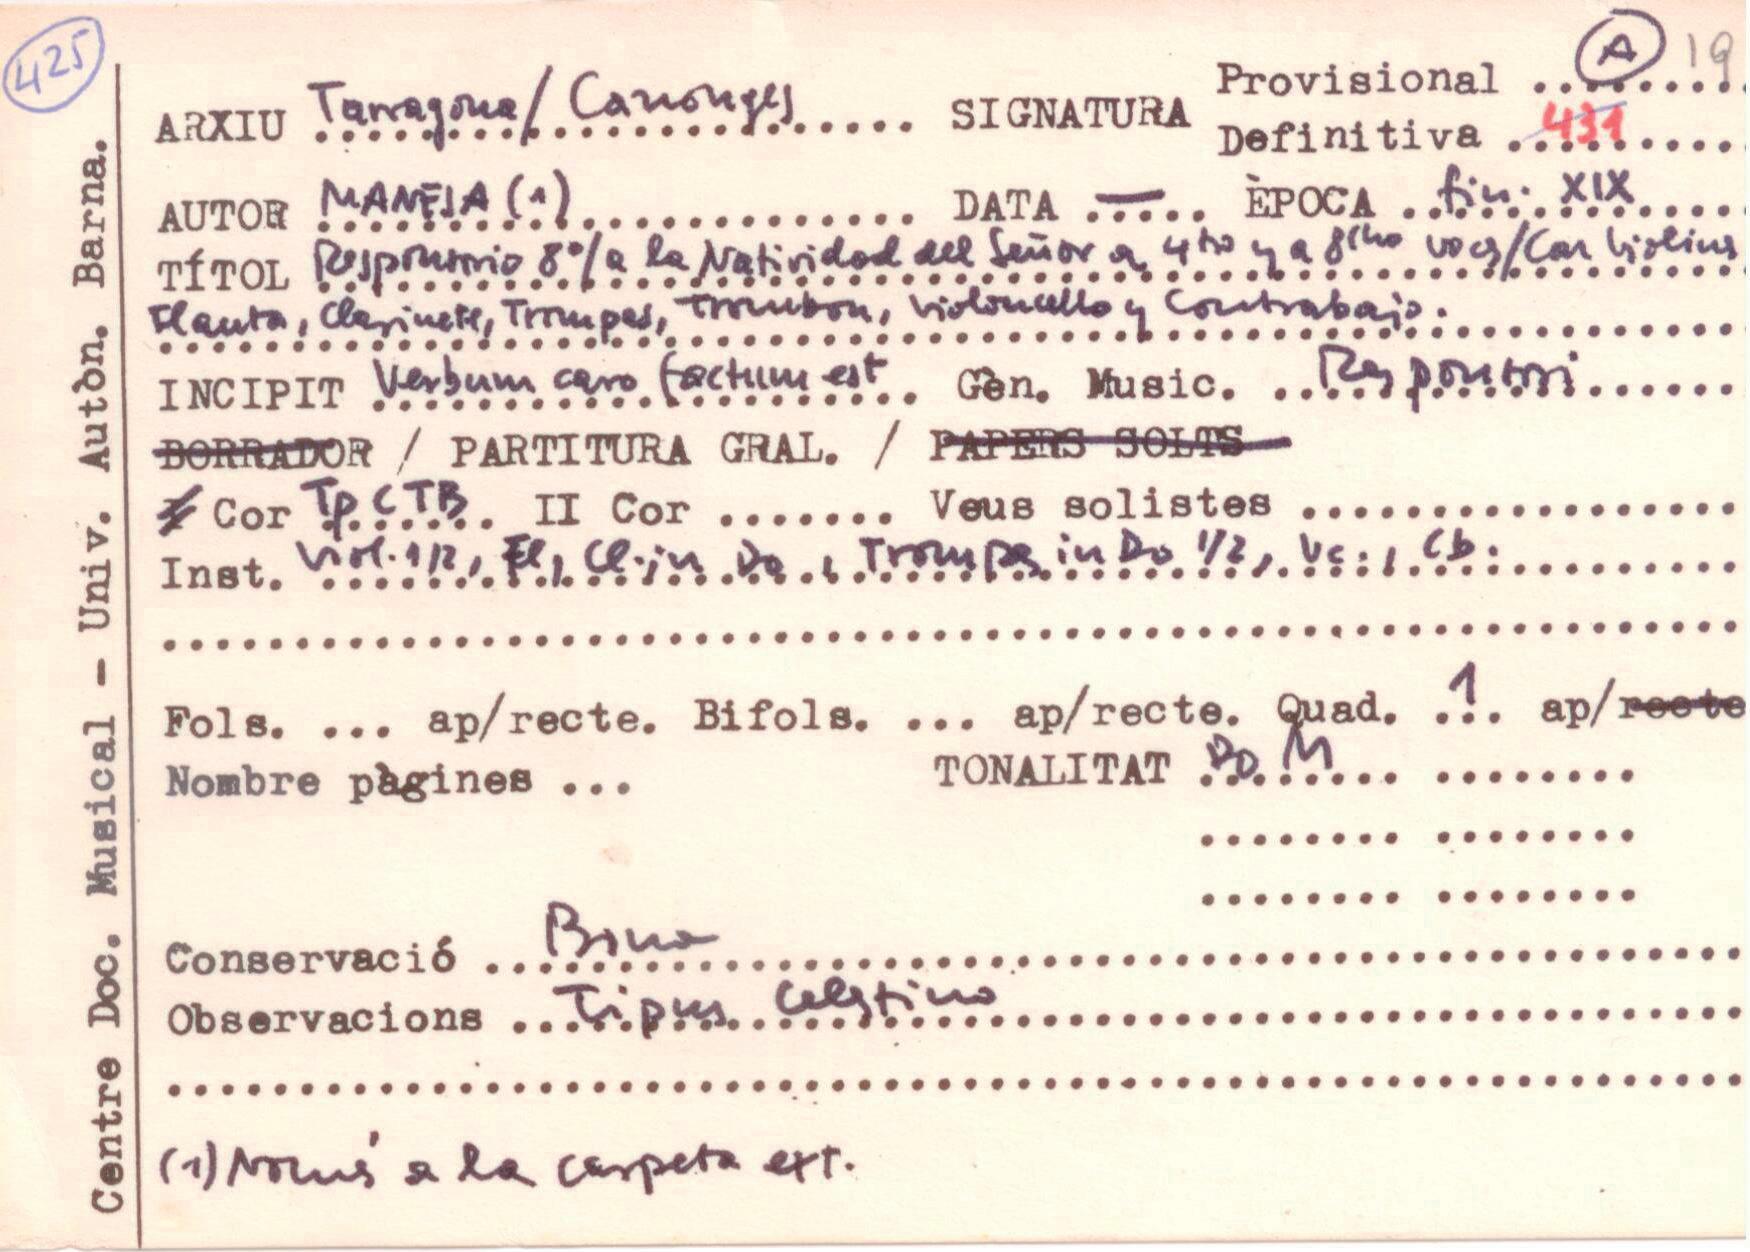 425
A 19
Provisional ........
ARXIU Tarragona/Canonges SIGNATURA
Definitiva 431
AUTOR MANEJA (1) DATA — ÈPOCA fin. XIX
TÍTOL Responsorio 8º/a la Natividad del Señor a 4tro y a 8cho voces/Con Violines
Flauta, Clarinete, Trompas, Trombon, Violoncello y Contrabajo.
INCIPIT Verbum caro factum est Gèn. Music. Responsori
BORRADOR / PARTITURA GRAL. / PAPERS SOLTS
Cor Tp C T B II Cor ....... Veus solistes ................
Inst. Viol. 1/2, Fl, Cl. in Do, Trompa in Do 1/2, Vc., Cb.
Fols. ... ap/recte. Bifols. ... ap/recte. Quad. 1 ap/recte
Nombre pàgines ... TONALITAT Do M
Conservació Bona
Observacions Tipus Celestino
(1) Només a la carpeta ext.
Centre Doc. Musical - Univ. Autòn. Barna.